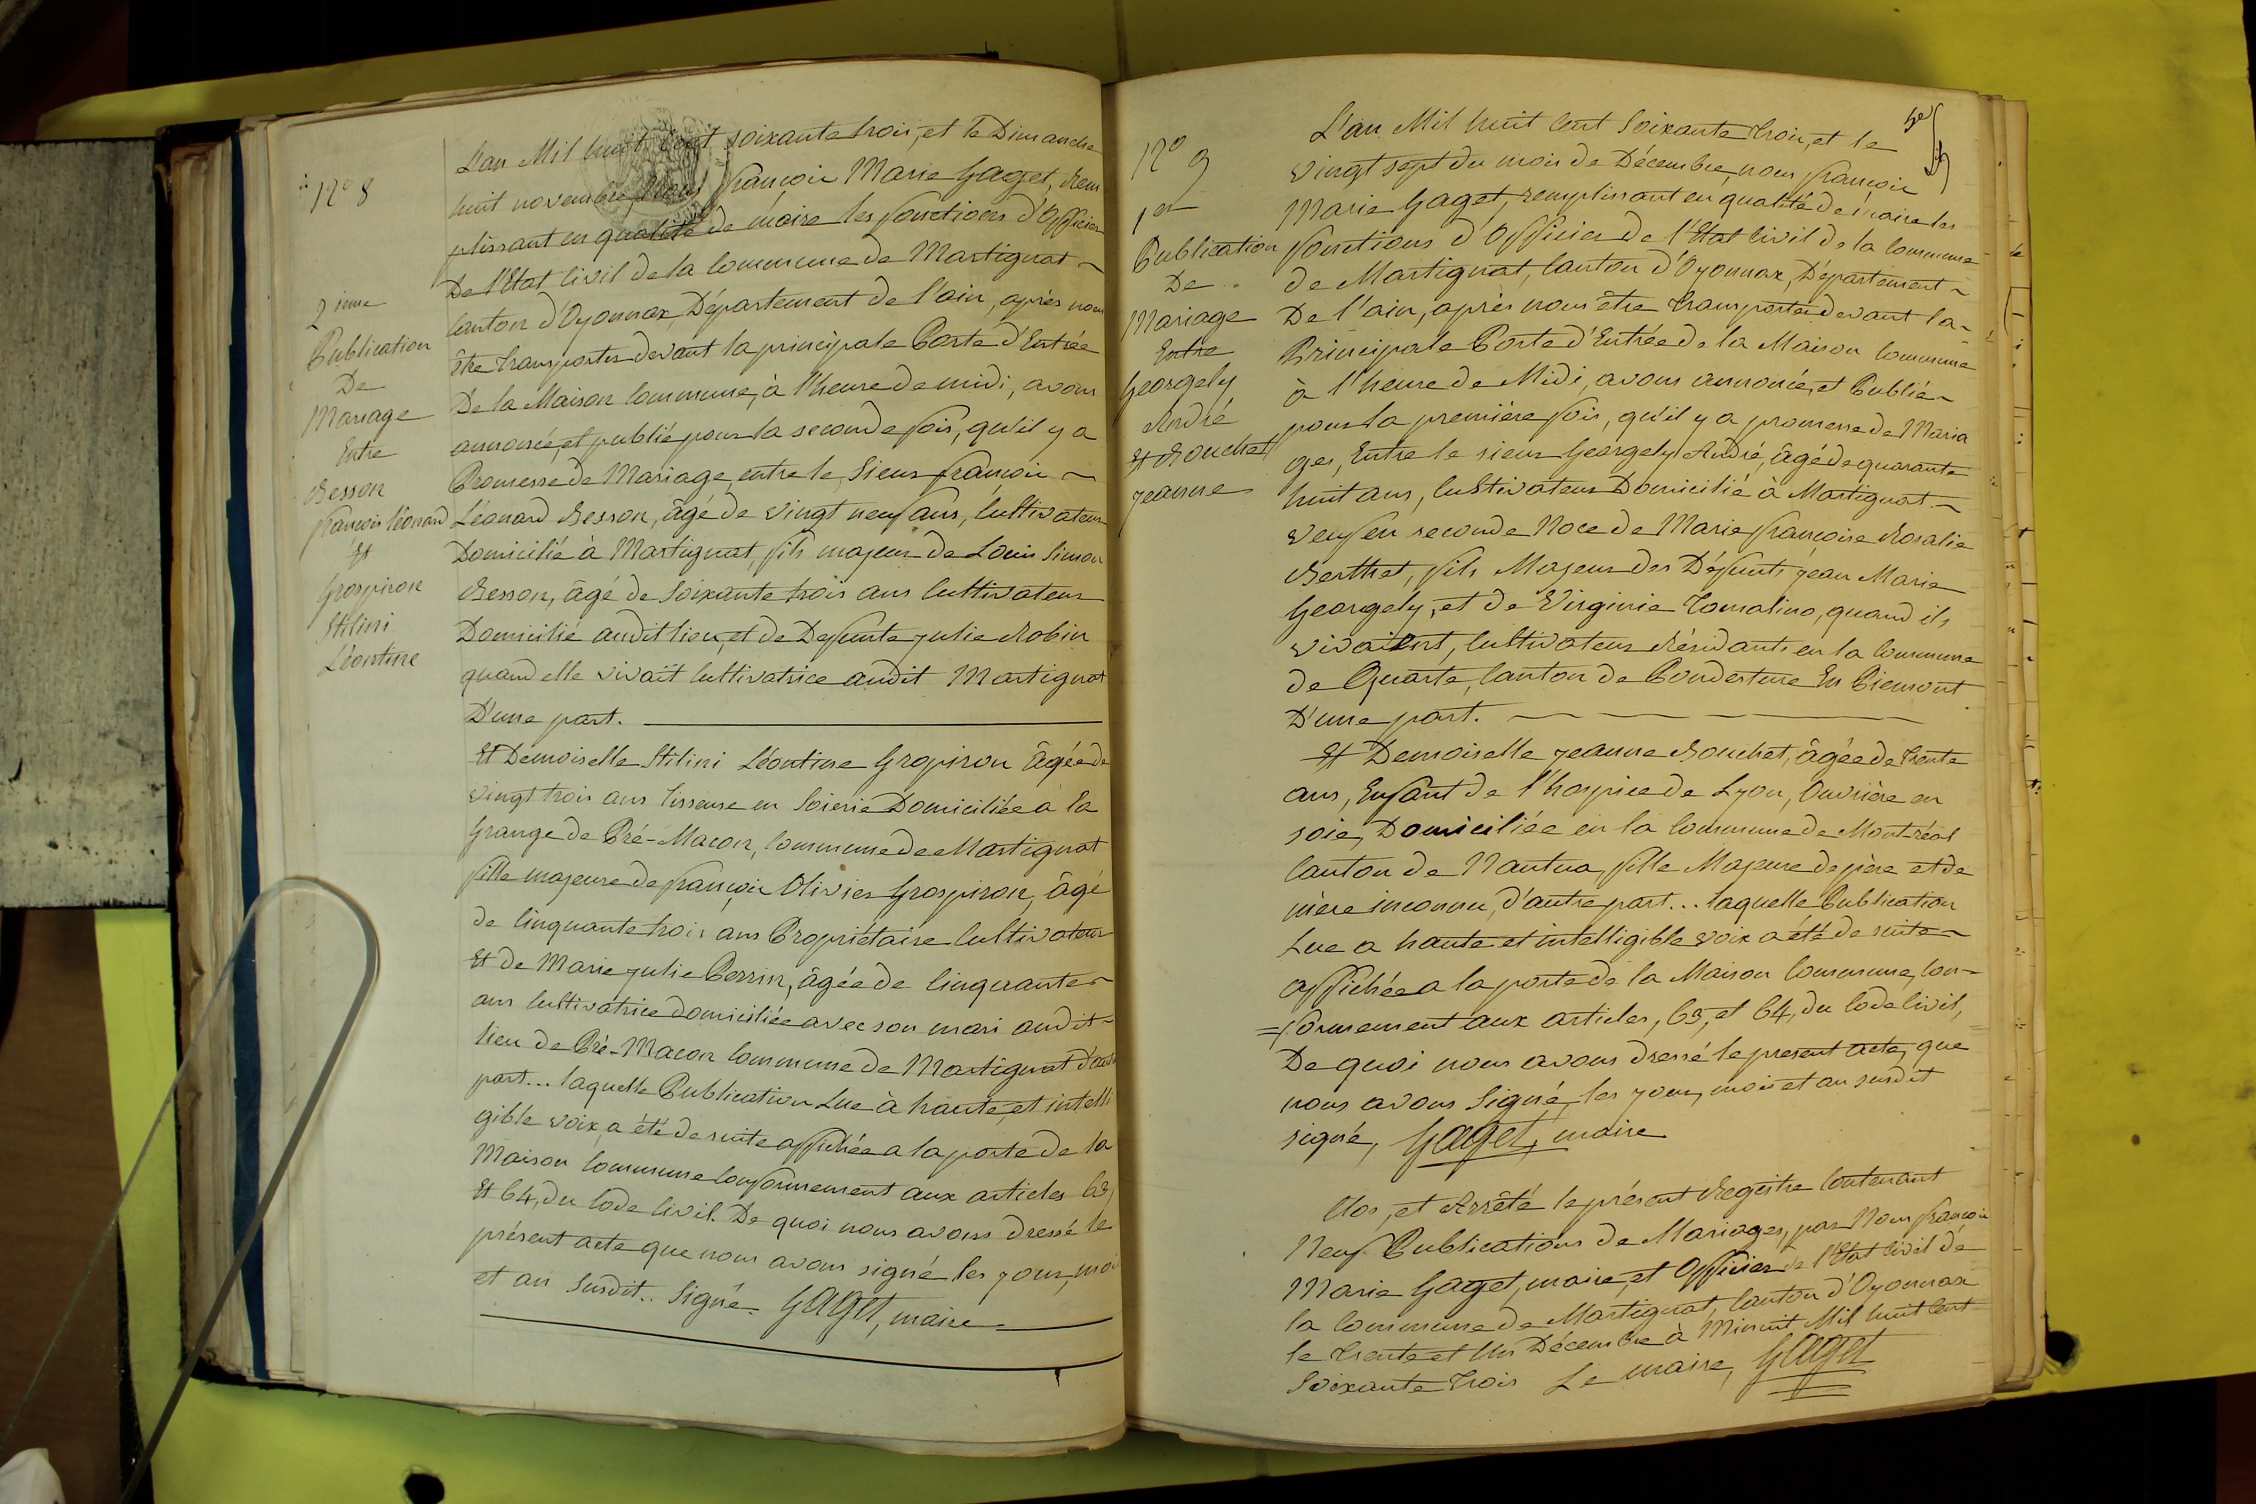 N° 8
2ieme
Publication
De
Mariage
Entre
Besson
françois léonard
Et
Grospiron
Stilini
Léontine
L'an Mil huit Cent soixante trois, et le Dimanche
huit novembre, Nous françois Marie Gaget, Rem
plissant en qualité de maire les fonctions d'Officier
De l'Etat Civil de la Commune de Martignat ~
Canton d'Oyonnax, Département de l'ain, après nous
être transportés devant la principale Porte d'Entrée
De la Maison Commune, à l'heure de midi, avons
annoncé, et publié pour la seconde fois, qu'il y a
Promesse de Mariage, entre le Sieur françois ~
Léonard Besson, âgé de vingt neuf ans, Cultivateur
Domicilié à Martignat, fils majeur de Louis Simon
Besson, âgé de Soixante trois ans Cultivateur
Domicilié audit lieu, et de Defunte Julie Robin
quand elle vivait Cultivatrice audit Martignat
D'une part.
Et Demoiselle Stilini Léontine Gropiron Âgée de
vingt trois ans tisseuse en Soierie Domiciliée à la
Grange de Pré-Macon, Commune de Martignat
fille majeure de françois Olivier Grospiron, âgé
de Cinquante trois ans Propriétaire Cultivateur
Et de Marie Julie Perrin, âgée de Cinquante ~
ans Cultivatrice domiciliée avec son mari audit ~
lieu de Pré-Macon Commune de Martignat d'autre
part... laquelle Publication Lue à haute, et intelli
gible voix, a été de suite affichée a la porte de la
Maison Commune Conformement aux articles 63,
Et 64, du Code Civil. De quoi nous avons dressé le
présent acte que nous avons signé les jour, mois
et an Susdit.. Signé. Gaget, maire
N° 9
1er
Publication
De
Mariage
Entre
Georgely
André
Et Bouchet
Jeanne
L'an Mil huit Cent Soixante trois, et le
vingt sept du mois de Décembre, nous françois
Marie Gaget, remplissant en qualité de maire les
fonctions d'Officier de l'Etat Civil de la Commune
de Martignat, Canton d'Oyonnax, Département ~
De l'ain, après nous être transportés devant la ~
Principale Porte d'Entrée de la Maison Commune
à l'heure de Midi, avons annoncé, et Publié ~
pour la première fois, qu'il y a promesse de Maria
ges, Entre le sieur Georgely André, âgé de quarante
huit ans, Cultivateur Domicilié à Martignat ~
veuf en seconde Noce de Marie françoise Rosalie
Berthet, fils Majeur des Défunts Jean Marie
Georgely, et de Virginie Tomalino, quand ils
vivaient, Cultivateurs Résidants en la Commune
de Quarte, Canton de Ponderture En Piemont
D'une part.
Et Demoiselle Jeanne Bouchet, âgée de trente
ans, Enfant de l'hospice de Lyon, Ouvrière en
soie, Domiciliée en la Commune de Mont-réal
Canton de Nantua, fille Majeure de père et de
mère inconnu, d'autre part... laquelle Publication
Lue a haute et intelligible voix a été de suite ~
affichée a la porte de la Maison Commune, Con-
=formement aux articles, 63, et 64, du Code Civil,
De quoi nous avons dressé le present acte, que
nous avons Signé, les jour, mois et an susdit
signé, Gaget, maire
Clos, et Arrêté le présent Registre Contenant
Neuf Publications de Mariages, par Nous françois
Marie Gaget, maire, et Officier de l'Etat Civil de
la Commune de Martignat, Canton d'Oyonnax
le trente et Un Décembre à Minuit Mil huit Cent
Soixante trois Le maire, Gaget